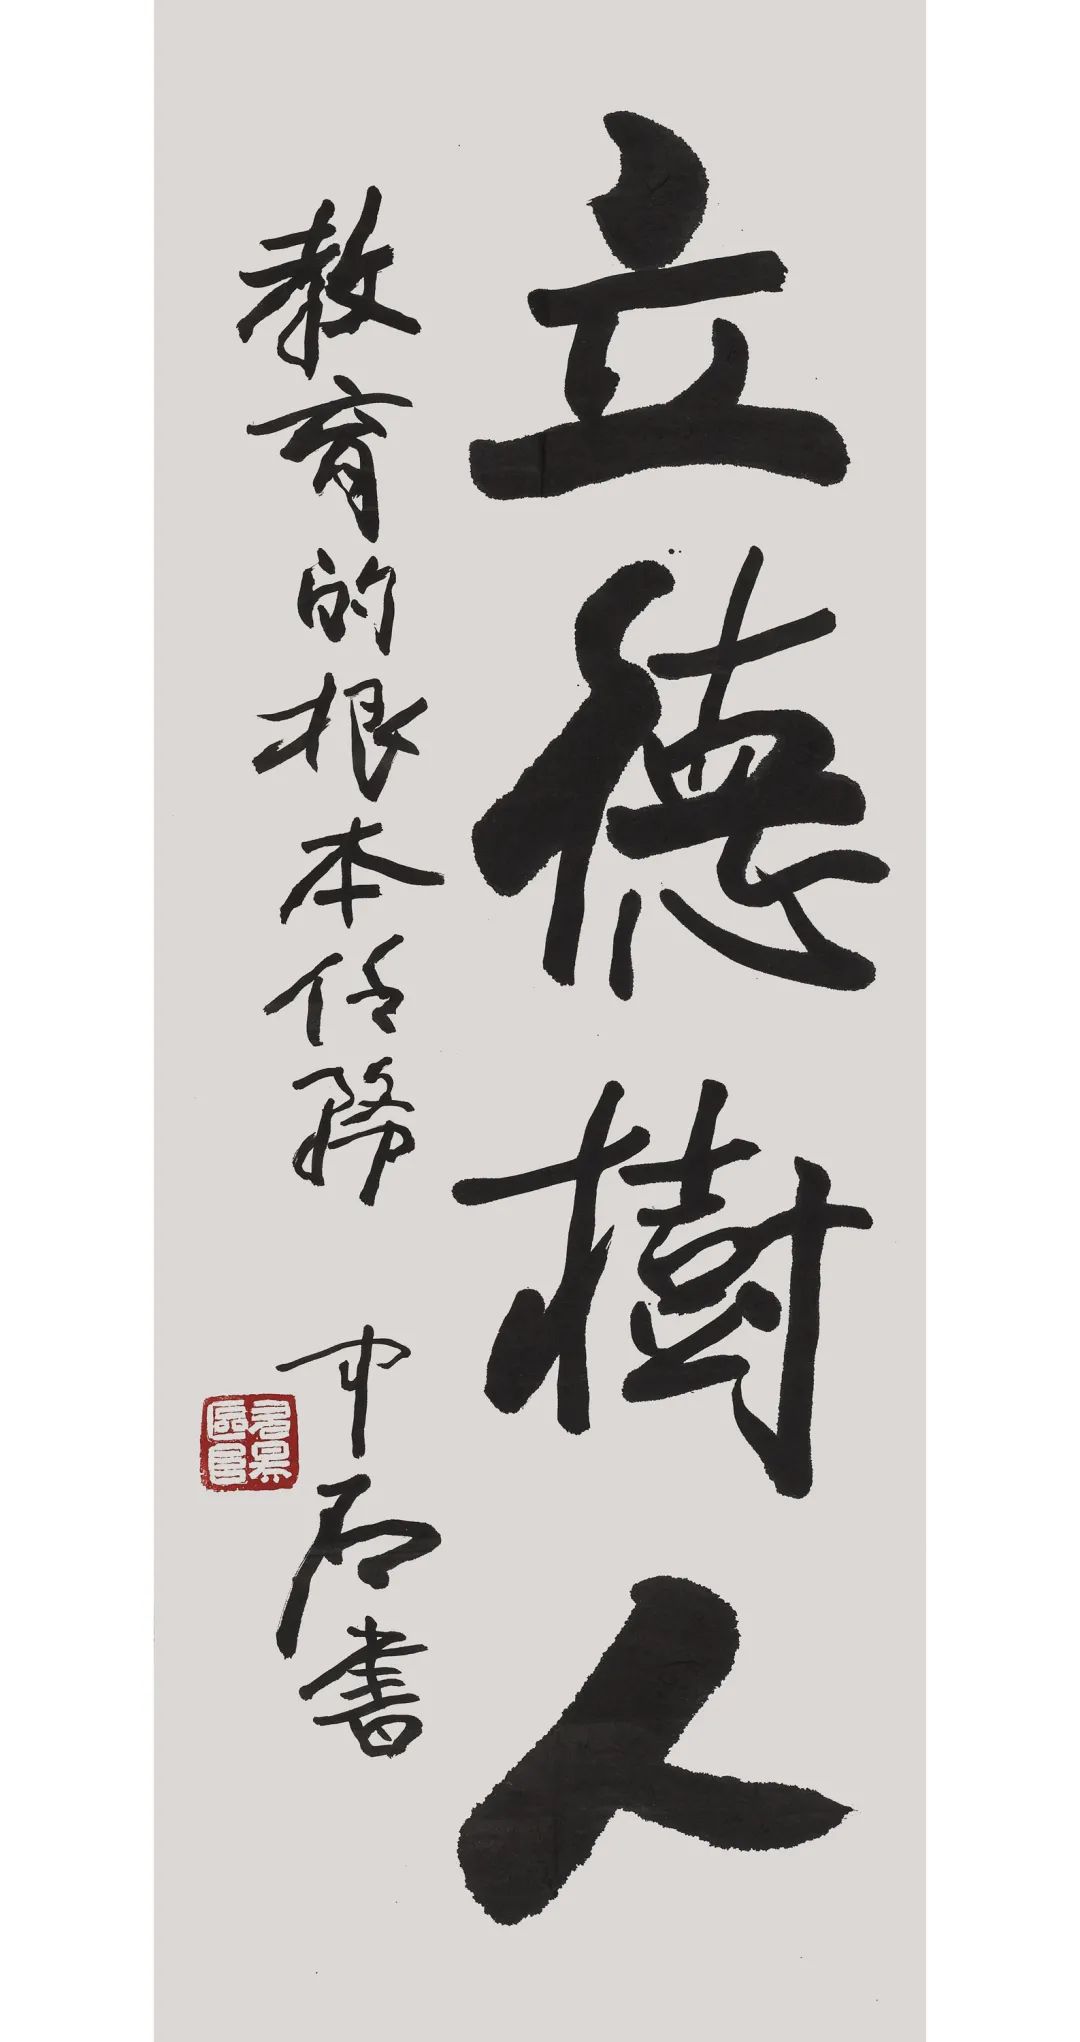 立德樹人
教育的根本任務
中石書